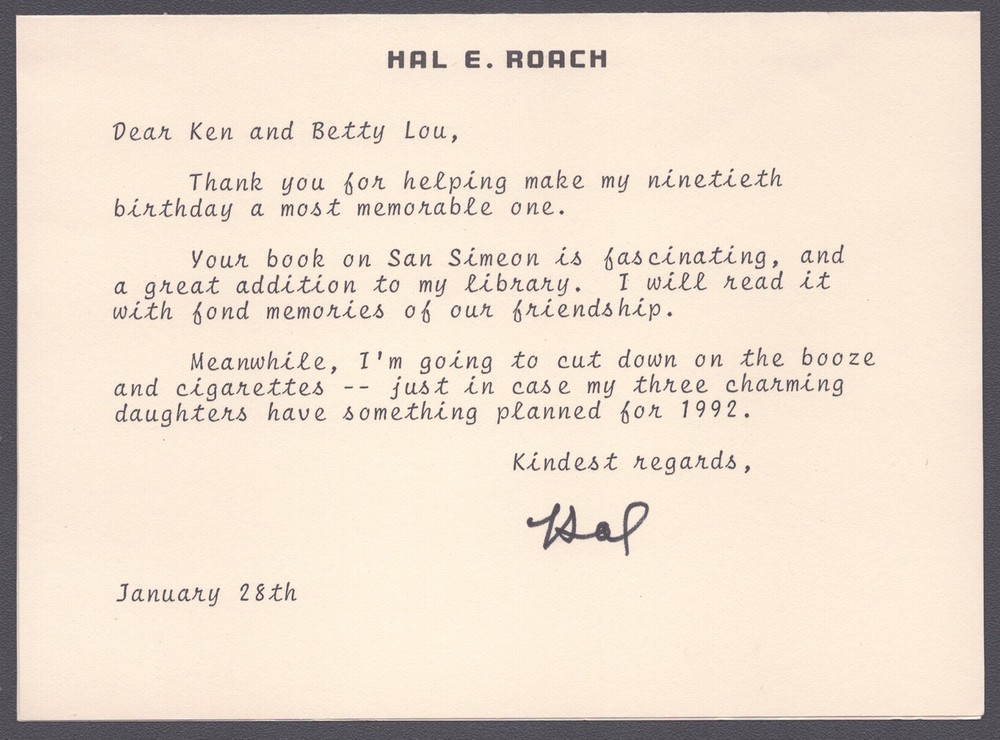 HAL E. ROACH
Dear Ken and Betty Lou,
Thank you for helping make my ninetieth
birthday a most memorable one.
Your book on San Simeon is fascinating, and
a great addition to my library.  I will read it
with fond memories of our friendship.
Meanwhile, I'm going to cut down on the booze
and cigarettes -- just in case my three charming
daughters have something planned for 1992.
Kindest regards,
Hal
January 28th